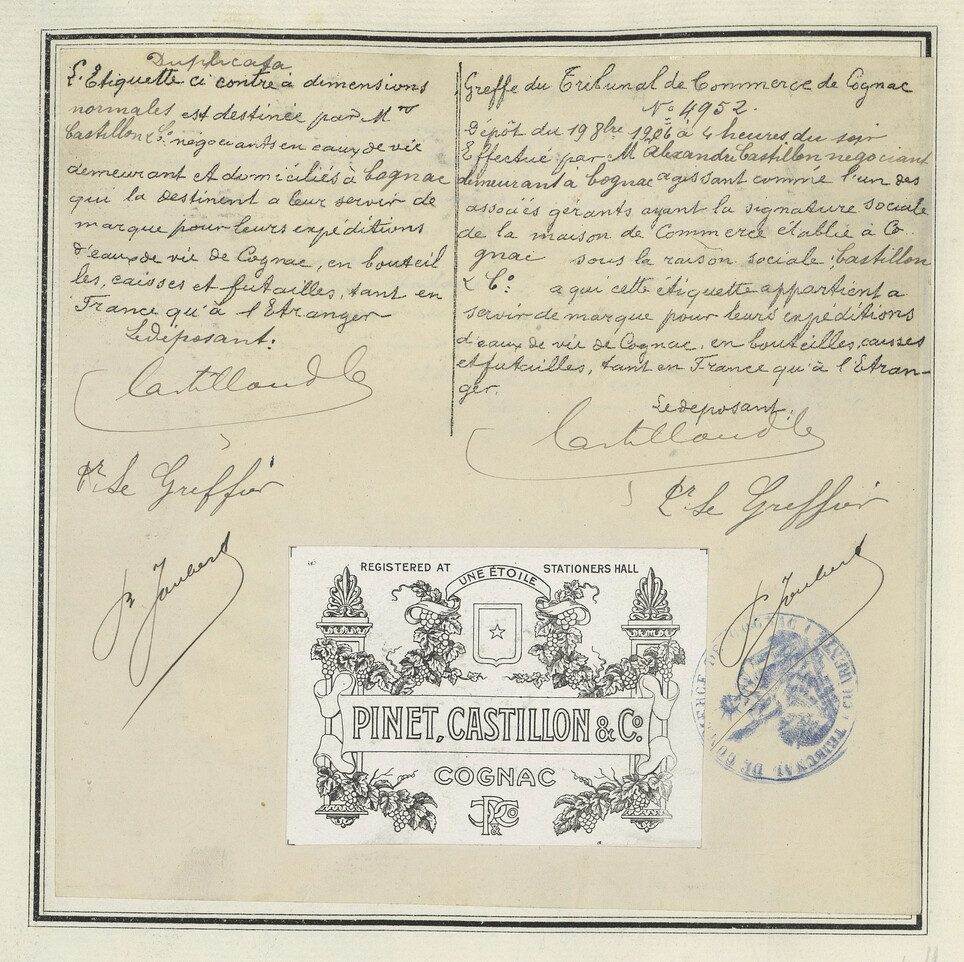 Duplicata
L'Etiquette ci contre à dimensions
normales est destinée par Mrs
Castillon & Co. négociants en eaux de vie
demeurant et domiciliés à Cognac
qui la destinent a leur servir de
marque pour leurs expéditions
d'eaux de vie de Cognac, en bouteil
les, caisses et futailles, tant en
France qu'à l'Etranger
Le déposant:
Castillon & Co
pr. Le Greffier
P Joubert
Greffe du Tribunal de Commerce de Cognac
No 4952.
Dépôt du 19 8bre 1906 à 4 heures du soir
Effectué par M Alexandre Castillon negociant
demeurant à Cognac agissant comme l'un des
associés gérants ayant la signature sociale
de la maison de Commerce établie à Co
gnac sous la raison sociale, Castillon
& Co. a qui cette étiquette appartient a
servir de marque pour leurs expéditions
d'eaux de vie de Cognac, en bouteilles, caisses
et futailles, tant en France qu'à l'Etran-
ger.
Le deposant.
Castillon & Co
pr. Le Greffier
P Joubert
REGISTERED AT STATIONERS HALL
UNE ÉTOILE
PINET, CASTILLON & Co.
COGNAC
TRIBUNAL DE COMMERCE DE COGNAC